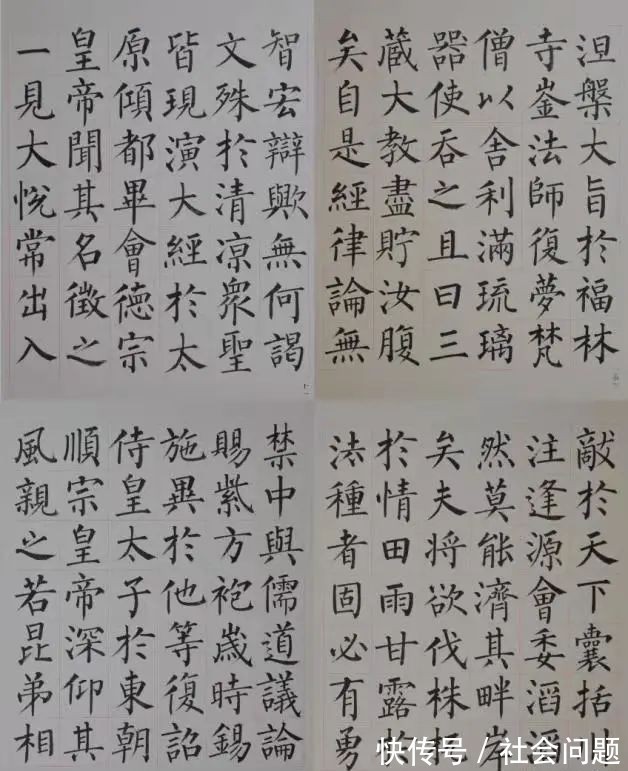 涅槃大旨於福林
寺崟法師復夢梵
僧以舍利滿琉璃
器使吞之且曰三
藏大教盡貯汝腹
矣自是經律論無
敵於天下囊括川
注逢源會委滔滔
然莫能濟其畔岸
矣夫將欲伐株
於情田雨甘露於
法種者固必有勇
智宏辯歟無何謁
文殊於清凉眾聖
皆現演大經於太
原傾都畢會德宗
皇帝聞其名徵之
一見大悅常出入
禁中與儒道議論
賜紫方袍歲時錫
施異於他等復詔
侍皇太子於東朝
順宗皇帝深仰其
風親之若昆弟相
快传号/社会问题